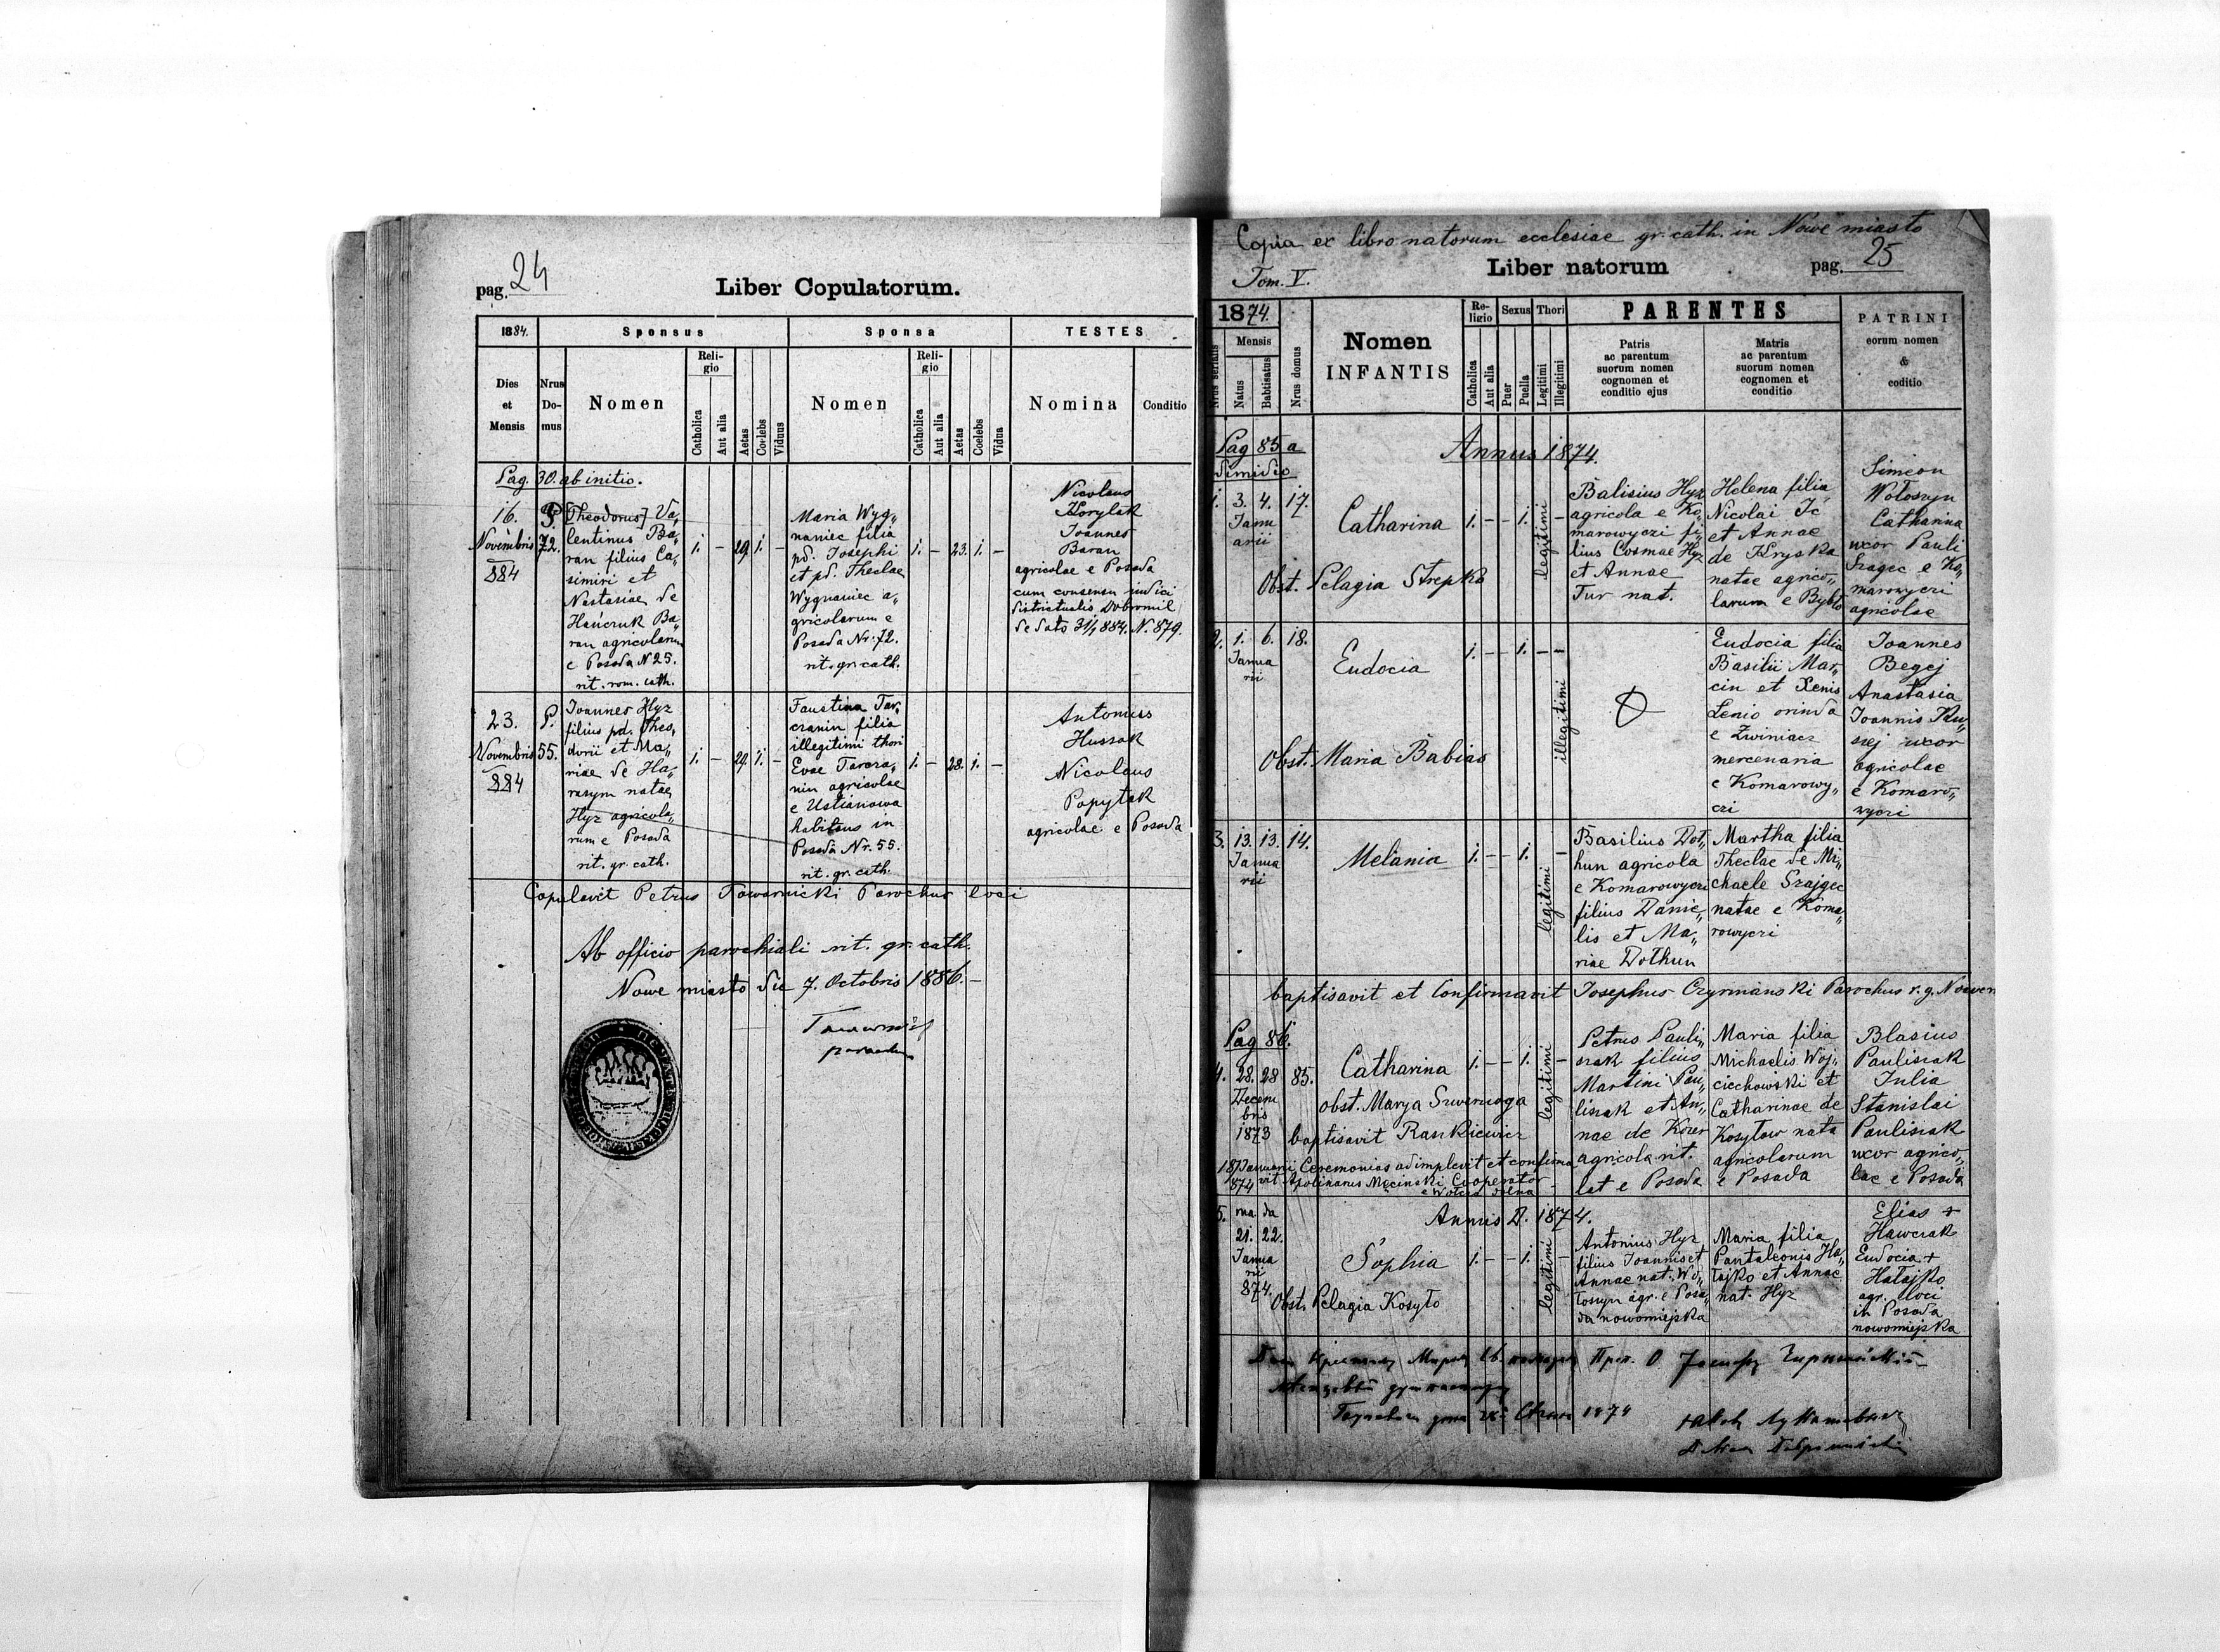 pag. 24
Liber Copulatorum.
1884.
Sponsus
Sponsa
TESTES
Dies
et
Mensis
Nrus
Do-
mus
Nomen
Reli-
gio
Catholica
Aut alia
Aetas
Coelebs
Viduus
Nomen
Reli-
gio
Catholica
Aut alia
Aetas
Coelebs
Vidua
Nomina
Conditio
Pag. 30. ab initio.
16.
Novembris
884
P.
72.
[Theodorus] Va„
lentinus Ba„
ran filius Ca„
simiri et
Nastasiae de
Hańczuk Ba„
ran agricolarum
e Posada N 25.
rit. rom. cath.
1. – 29 1. –
Maria Wyg„
naniec filia
pd. Josephi
et pd. Theclae
Wygnaniec a„
gricolarum e
Posada Nr. 72.
rit. gr. cath.
1. – 23. 1. –
Nicolaus
Korylak
Joannes
Baran
agricolae e Posada
cum consensu judici
districtualis Dobromil
de dato 31/1 884. N. 879.
23.
Novembris
884
P.
55.
Joannes Hyz
filius pd. Theo„
dorii et Ma„
riae de Ha„
rasym natae
Hyz agricola„
rum e Posada
rit. gr. cath.
1. – 29. 1. –
Faustina Tar„
cranin filia
illegitimi thori
Evae Tarcra„
nin agricolae
e Ustianowa
habitans in
Posada Nr. 55.
rit. gr. cath.
1. – 28. 1. –
Antonius
Hussak
Nicolaus
Popytak
agricolae e Posada
Copulavit Petrus Towarnicki Parochus loci
Ab officio parochiali rit. gr. cath.
Nowe miasto die 7. Octobris 1886. –
Towarnicki
parochus
Copia ex libro natorum ecclesiae gr. cath. in Nowe miasto
Tom. V.
Liber natorum
pag. 25
1874.
Nrus serialis
Mensis
Natus
Babtisatus
Nrus domus
Nomen
INFANTIS
Re-
ligio
Catholica
Aut alia
Sexus
Puer
Puella
Thori
Legitimi
Illegitimi
PARENTES
Patris
ac parentum
suorum nomen
cognomen et
conditio ejus
Matris
ac parentum
suorum nomen
cognomen et
conditio
PATRINI
eorum nomen
&
coditio
Pag 85 a
dimidio
Annus 1874.
1. 3. 4. 17.
Janu
arii
Catharina
1. – – 1. legitimi –
Obst. Pelagia Strepko
Balisius Hyz
agricola e Ko„
marowyczi fi„
lius Cosmae Hyz
et Annae
Tur nat.
Helena filia
Nicolai Ić
et Annae
de Kryska
natae agrico„
larum e Bybło
Simeon
Wołoszyn
Catharina
uxor Pauli
Szagec e Ko„
marowyczi
agricolae
2. 1. 6. 18.
Janua
rii
Eudocia
1. – – 1. – –
illegitimi
Obst. Maria Babiao
Eudocia filia
Basilii Mar„
cin et Xenis
Lenio orinda
e Zwiniacz
mercenaria
e Komarowy„
czi
Joannes
Begej
Anastasia
Joannis Ku„
siej uxor
agricolae
e Komaro„
wyczi
3. 13. 13. 14.
Janua
rii
Melania
1. – – 1. legitimi –
Basilius Dot„
hun agricola
e Komarowyczi
filius Danie„
lis et Ma„
riae Dothun
Martha filia
Theclae de Mi„
chaele Szajgec
natae e Koma„
rowyczi
baptisavit et Confirmavit Josephus Czyrniański Parochus r. g. Noven
Pag 86.
4. 28. 28 85.
Decem
bris
1873
Catharina
1. – – 1. legitimi –
obst. Marya Szweruoga
baptisavit Rankiewicz
18/Januarii Ceremonias adimplevit et confirma
874 vit Apolinarus Męcinski Cooperator
e Wolcza dolna
Petrus Pauli„
szak filius
Martini Pau„
liszak et An„
nae de Kozer
agricola rit.
lat e Posada
Maria filia
Michaelis Woj„
ciechowski et
Catharinae de
Kosyłow nata
agricolarum
e Posada
Blasius
Pauliszak
Julia
Stanislai
Pauliszak
uxor agrico„
lae e Posada
Annus D. 1874.
5. na da
21. 22.
Janua
rii
874.
Sophia
1. – – 1. legitimi –
Obst. Pelagia Kosyło
Antonius Hyz
filius Joannis et
Annae nat. Wo„
łoszyn agr. e Posa„
da nowomiejska
Maria filia
Pantaleonis Ha„
łajko et Annae
nat. Hyz
Elias +
Hawczak
Eudocia +
Hałajko
agr. loci
in Posada
nowomiejska
1874